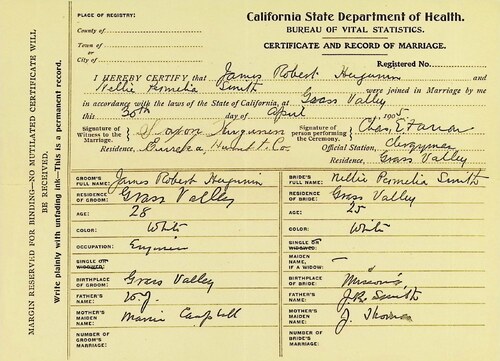 PLACE OF REGISTRY:
County of
Town of
or
City of
California State Department of Health.
BUREAU OF VITAL STATISTICS.
CERTIFICATE AND RECORD OF MARRIAGE.
Registered No.
I HEREBY CERTIFY that James Robert Hugunin and
Nellie Permelia Smith were joined in Marriage by me
in accordance with the laws of the State of California, at Grass Valley
this 30th day of April 1905
Signature of Witness to the Marriage.
Residence, Eureka,
Signature of person performing the Ceremony. Chas. E.
Official Station, Clergyman
Residence, Grass Valley
MARGIN RESERVED FOR BINDING—NO MUTILATED CERTIFICATE WILL BE RECEIVED.
Write plainly with unfading ink—This is a permanent record.
GROOM'S FULL NAME: James Robert Hugunin
RESIDENCE OF GROOM: Grass Valley
AGE: 28
COLOR: White
OCCUPATION: Engineer
SINGLE OR WIDOWED:
BIRTHPLACE OF GROOM: Grass Valley
FATHER'S NAME:
MOTHER'S MAIDEN NAME: Campbell
NUMBER OF GROOM'S MARRIAGE:
BRIDE'S FULL NAME: Nellie Permelia Smith
RESIDENCE OF BRIDE: Grass Valley
AGE: 25
COLOR: White
SINGLE OR WIDOWED:
MAIDEN NAME, IF A WIDOW:
BIRTHPLACE OF BRIDE: Missouri
FATHER'S NAME: Smith
MOTHER'S MAIDEN NAME: J. Thomas
NUMBER OF BRIDE'S MARRIAGE: